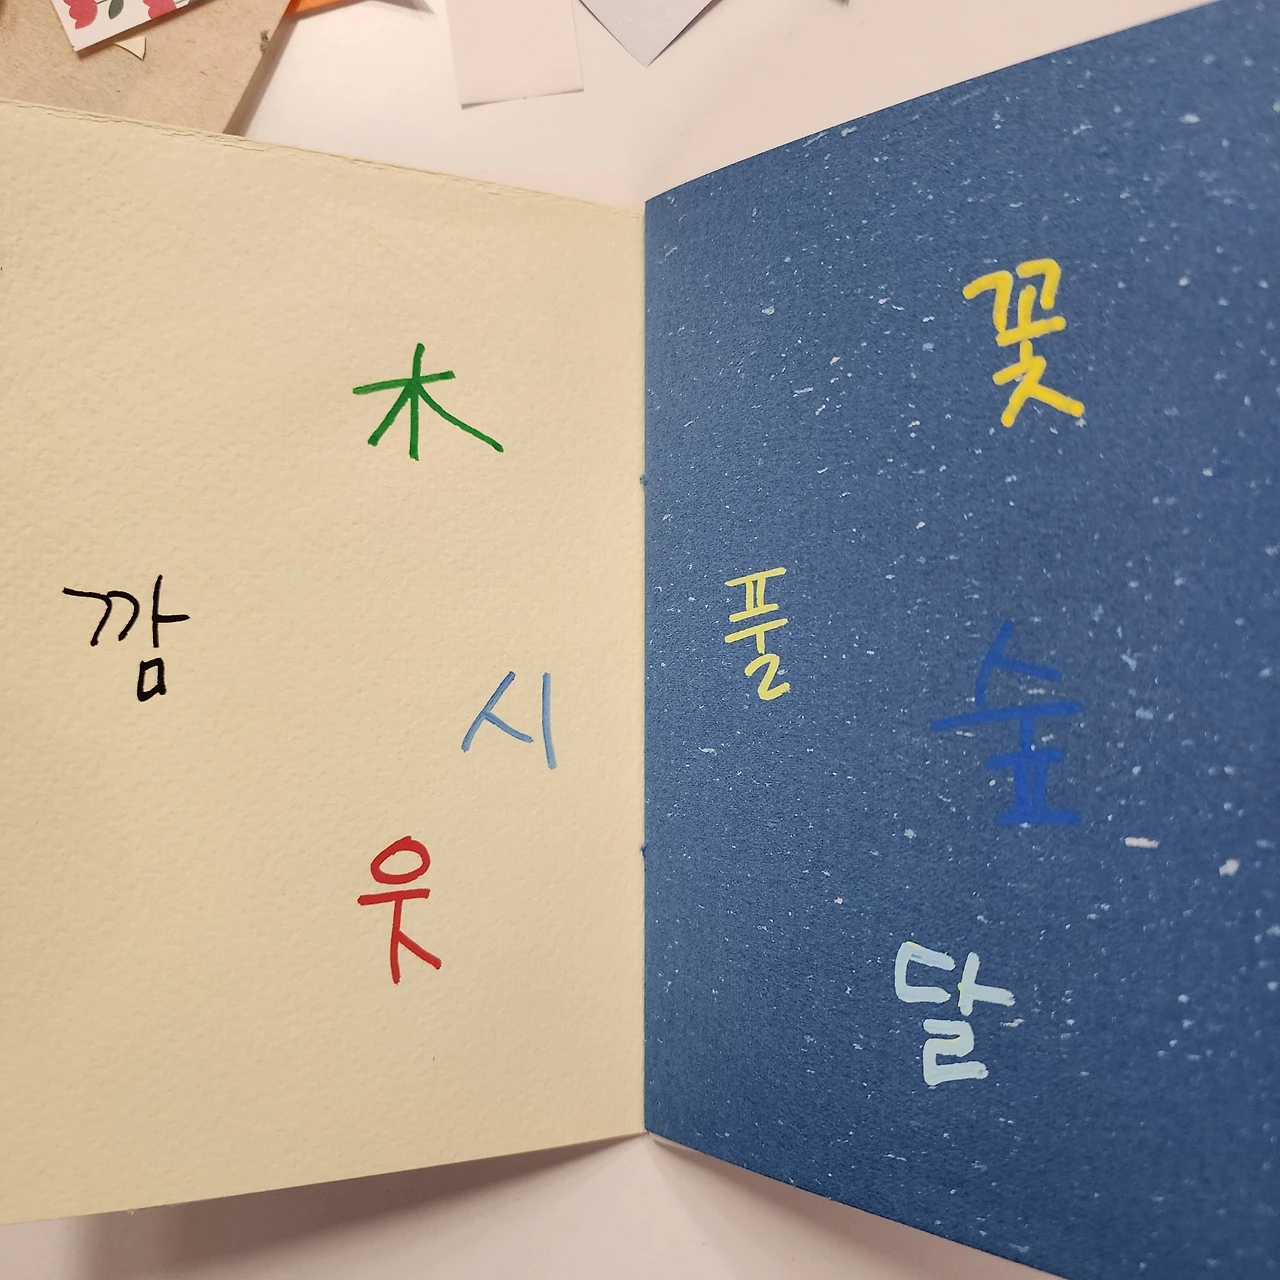 木
깜
시
웃
꽃
풀
숲
달